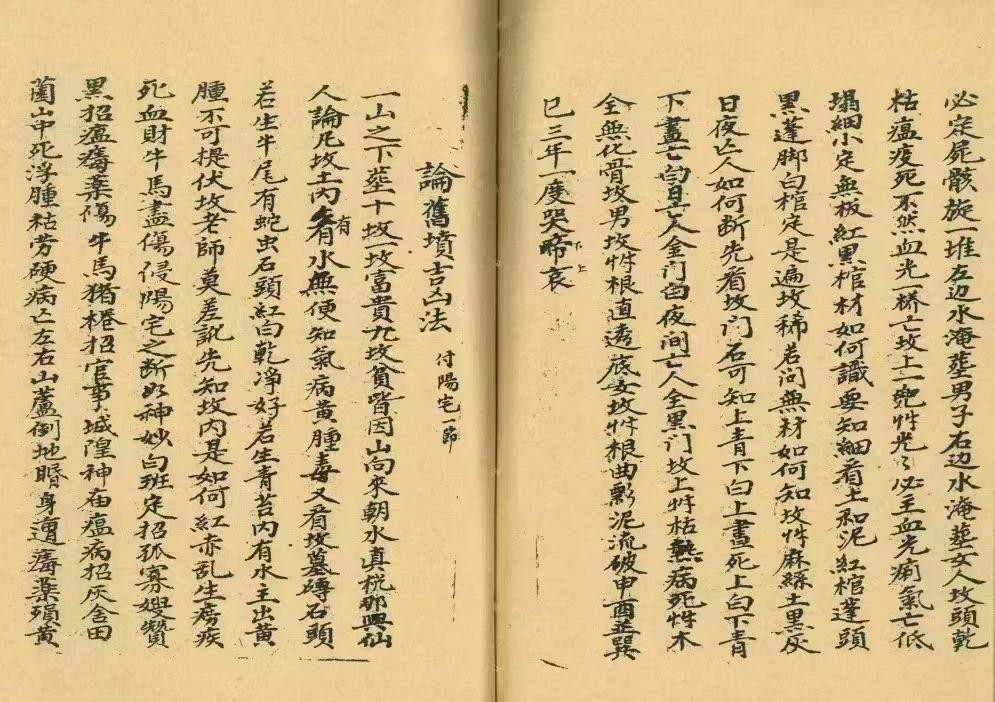 必定屍骸旋一堆左边水淹塟男子右边水淹塟女人坟頭乾
枯瘟疫死不然血光一橋亡坟上一兜艸光〻必主血光痢氣亡低
塌細小定無板紅黑棺材如何識要知細看土和泥紅棺蓬頭
黑蓬脚白棺定是遍坟稀若問無材如何知坟艸麻絲土黑灰
日夜亡人如何断先看坟门石可知上青下白上畫死上白下青
下畫亡白日亡人金门白夜间亡人全黑门坟上艸枯熱病死艸木
全無化骨坟男坟艸根直透底女坟艸根曲飄泥流破申酉並巽
巳三年一度哭啼哀
下上
論舊墳吉凶法
付陽宅一節
一山之下塟十坟一坟富貴九坟貧皆因山向來朝水真税那與仙
人論凡坟土内有水無便知氣病黄腫毒又看坟墓磚石頭
有
若生牛尾有蛇虫石頭紅白乾净好若生青苔内有水主出黄
腫不可提伏坟老師莫差訊先知坟内是如何紅赤乱生痨疾
死血財牛馬盡傷侵陽宅之断如神妙白班定招孤寡嫂贊
黑招瘟㾮薬傷牛馬猪樁招官事城隍神庙瘟病招灰舍田
薗山中死浮腫枯劳硬病亡左右山蘆倒地㬱身遭㾮薬殞黄